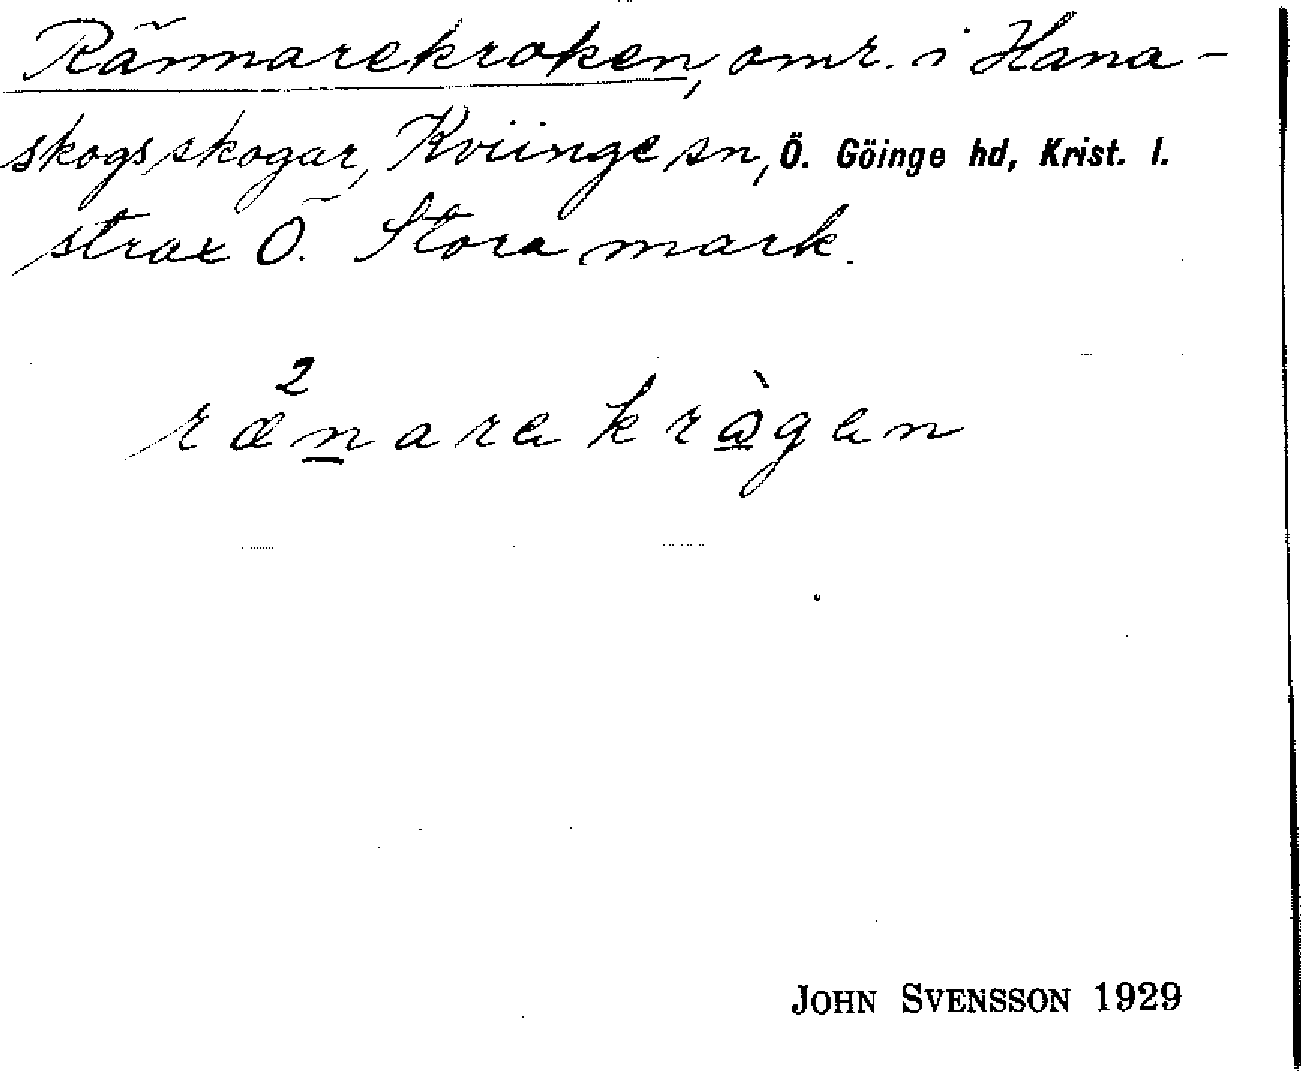 Rännarekroken, omr. i Hana-
skogs skogar, Kviinge sn, Ö. Göinge hd, Krist. l.
strax Ö. Stora mark.
2
rænarə krågən
JOHN SVENSSON 1929